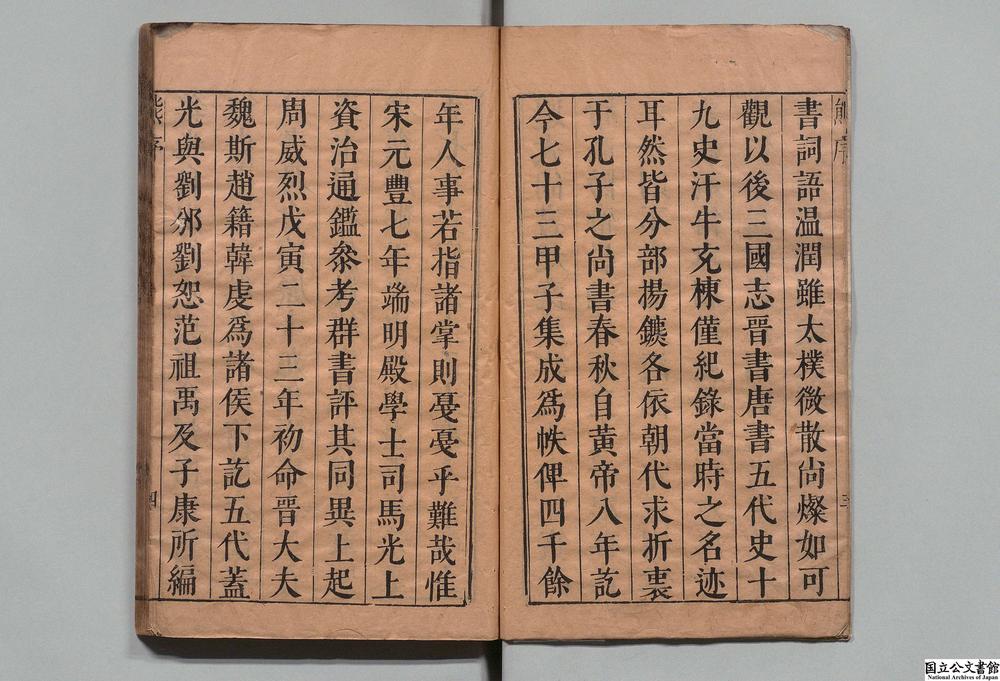 熊序
三
書詞語温潤雖太樸微散尚燦如可
觀以後三國志晉書唐書五代史十
九史汗牛充棟僅紀錄當時之名迹
耳然皆分部揚鑣各依朝代求折衷
于孔子之尚書春秋自黃帝八年訖
今七十三甲子集成爲帙俾四千餘
年人事若指諸掌則戞戞乎難哉惟
宋元豊七年端明殿學士司馬光上
資治通鑑叅考群書評其同異上起
周威烈戊寅二十三年初命晉大夫
魏斯趙籍韓虔爲諸侯下訖五代蓋
光與劉邠劉恕范祖禹及子康所編
熊序
四
国立公文書館
National Archives of Japan